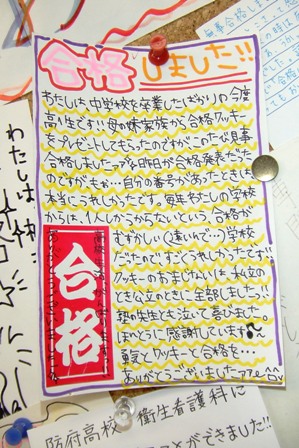 合格しました!!
わたしは、中学校を卒業したばかりの今度
高1生です!!母の妹家族から合格クッキー
をプレゼントしてもらったのですが、このたび見事
合格しましたーァ♪昨日が合格発表だった
のですが、もぉ…自分の番号があったときは、
本当にうれしかったです。毎年わたしの学校
からは、1人しかうからないという、合格が
むずかしい(遠いんで…)学校
だったのですごくうれしかったです!!
クッキーのおまじないは、私立の
とき公立のときに、全部しましたっ!!
塾の先生とも泣いて喜びました。
ほんとうに感謝しています
クッキーと合格を…
ありがとうございましたァァ
合格
わたしは体
防府高校 衛生看護科に
ことができました!!